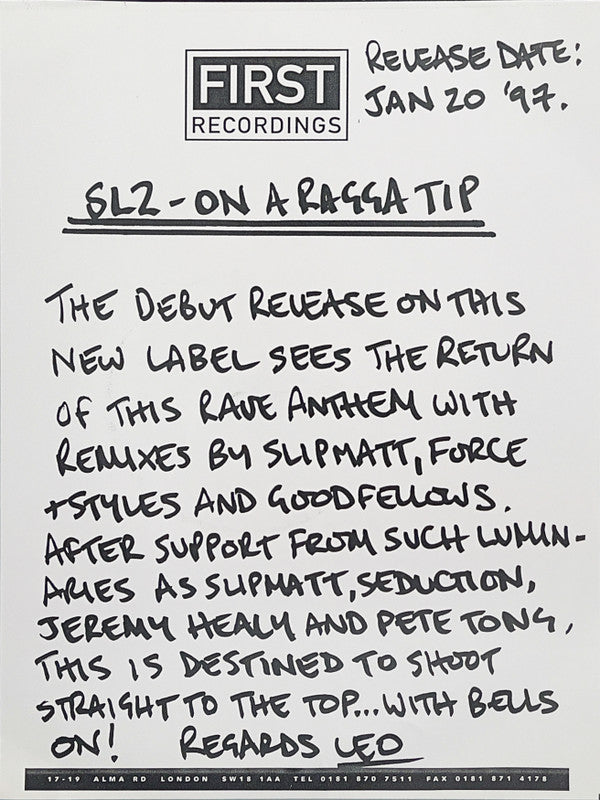 FIRST
RECORDINGS
RELEASE DATE:
JAN 20 '97.
SL2 - ON A RAGGA TIP
THE DEBUT RELEASE ON THIS
NEW LABEL SEES THE RETURN
OF THIS RAVE ANTHEM WITH
REMIXES BY SLIPMATT, FORCE
+STYLES AND GOODFELLOWS.
AFTER SUPPORT FROM SUCH LUMIN-
ARIES AS SLIPMATT, SEDUCTION,
JEREMY HEALY AND PETE TONG,
THIS IS DESTINED TO SHOOT
STRAIGHT TO THE TOP...WITH BELLS
ON! REGARDS LEO
17-19 ALMA RD LONDON SW18 1AA TEL 0181 870 7511 FAX 0181 871 4178